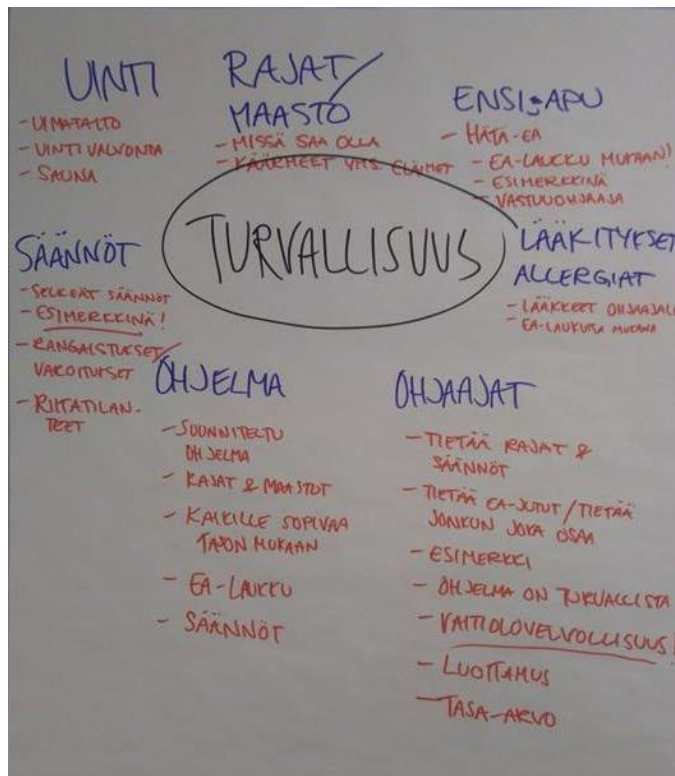 UINTI
- UIMATAITO
- UINTI VALVONTA
- SAUNA
RAJAT/
MAASTO
- MISSÄ SAA OLLA
- KÄÄRMEET YMS. ELÄIMET
ENSI-APU
- HÄTÄ-EA
- EA-LAUKKU MUKAAN!
- ESIMERKKINÄ
- VASTUUOHJAAJA
TURVALLISUUS
SÄÄNNÖT
- SELKEÄT SÄÄNNÖT
- ESIMERKKINÄ!
- RANGAISTUKSET/
VAROITUKSET
- RIITATILAN-
TEET
LÄÄKITYKSET
ALLERGIAT
- LÄÄKKEET OHJAAJALL
- EA-LAUKUSSA MUKANA
OHJELMA
- SUUNNITELTU
OHJELMA
- RAJAT & MAASTOT
- KAIKILLE SOPIVAA
TASON MUKAAN
- EA-LAUKKU
- SÄÄNNÖT
OHJAAJAT
- TIETÄÄ RAJAT &
SÄÄNNÖT
- TIETÄÄ EA-JUTUT / TIETÄÄ
JONKUN JOKA OSAA
- ESIMERKKI
- OHJELMA ON TURVALLISTA
- VAITIOLOVELVOLLISUUS!
- LUOTTAMUS
- TASA-ARVO